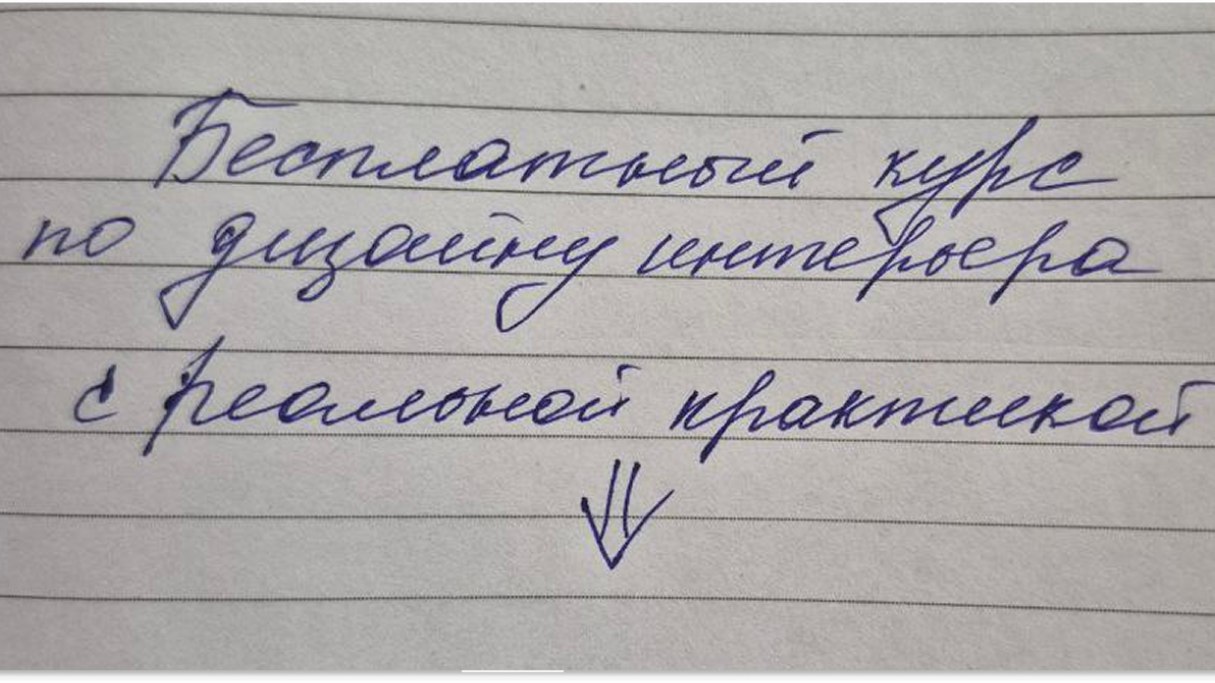 Бесплатный курс
по дизайну интерьера
с реальной практикой